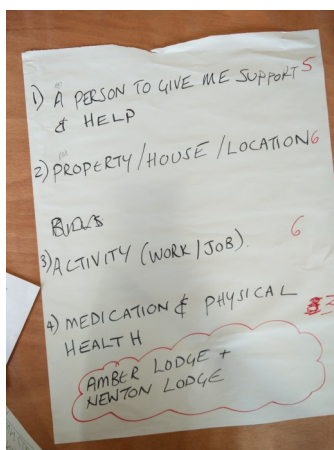 1) A PERSON TO GIVE ME SUPPORT 5
& HELP
2) PROPERTY/HOUSE/LOCATION 6
6
3) ACTIVITY (WORK/JOB).
4) MEDICATION & PHYSICAL
HEALTH
AMBER LODGE +
NEWTON LODGE